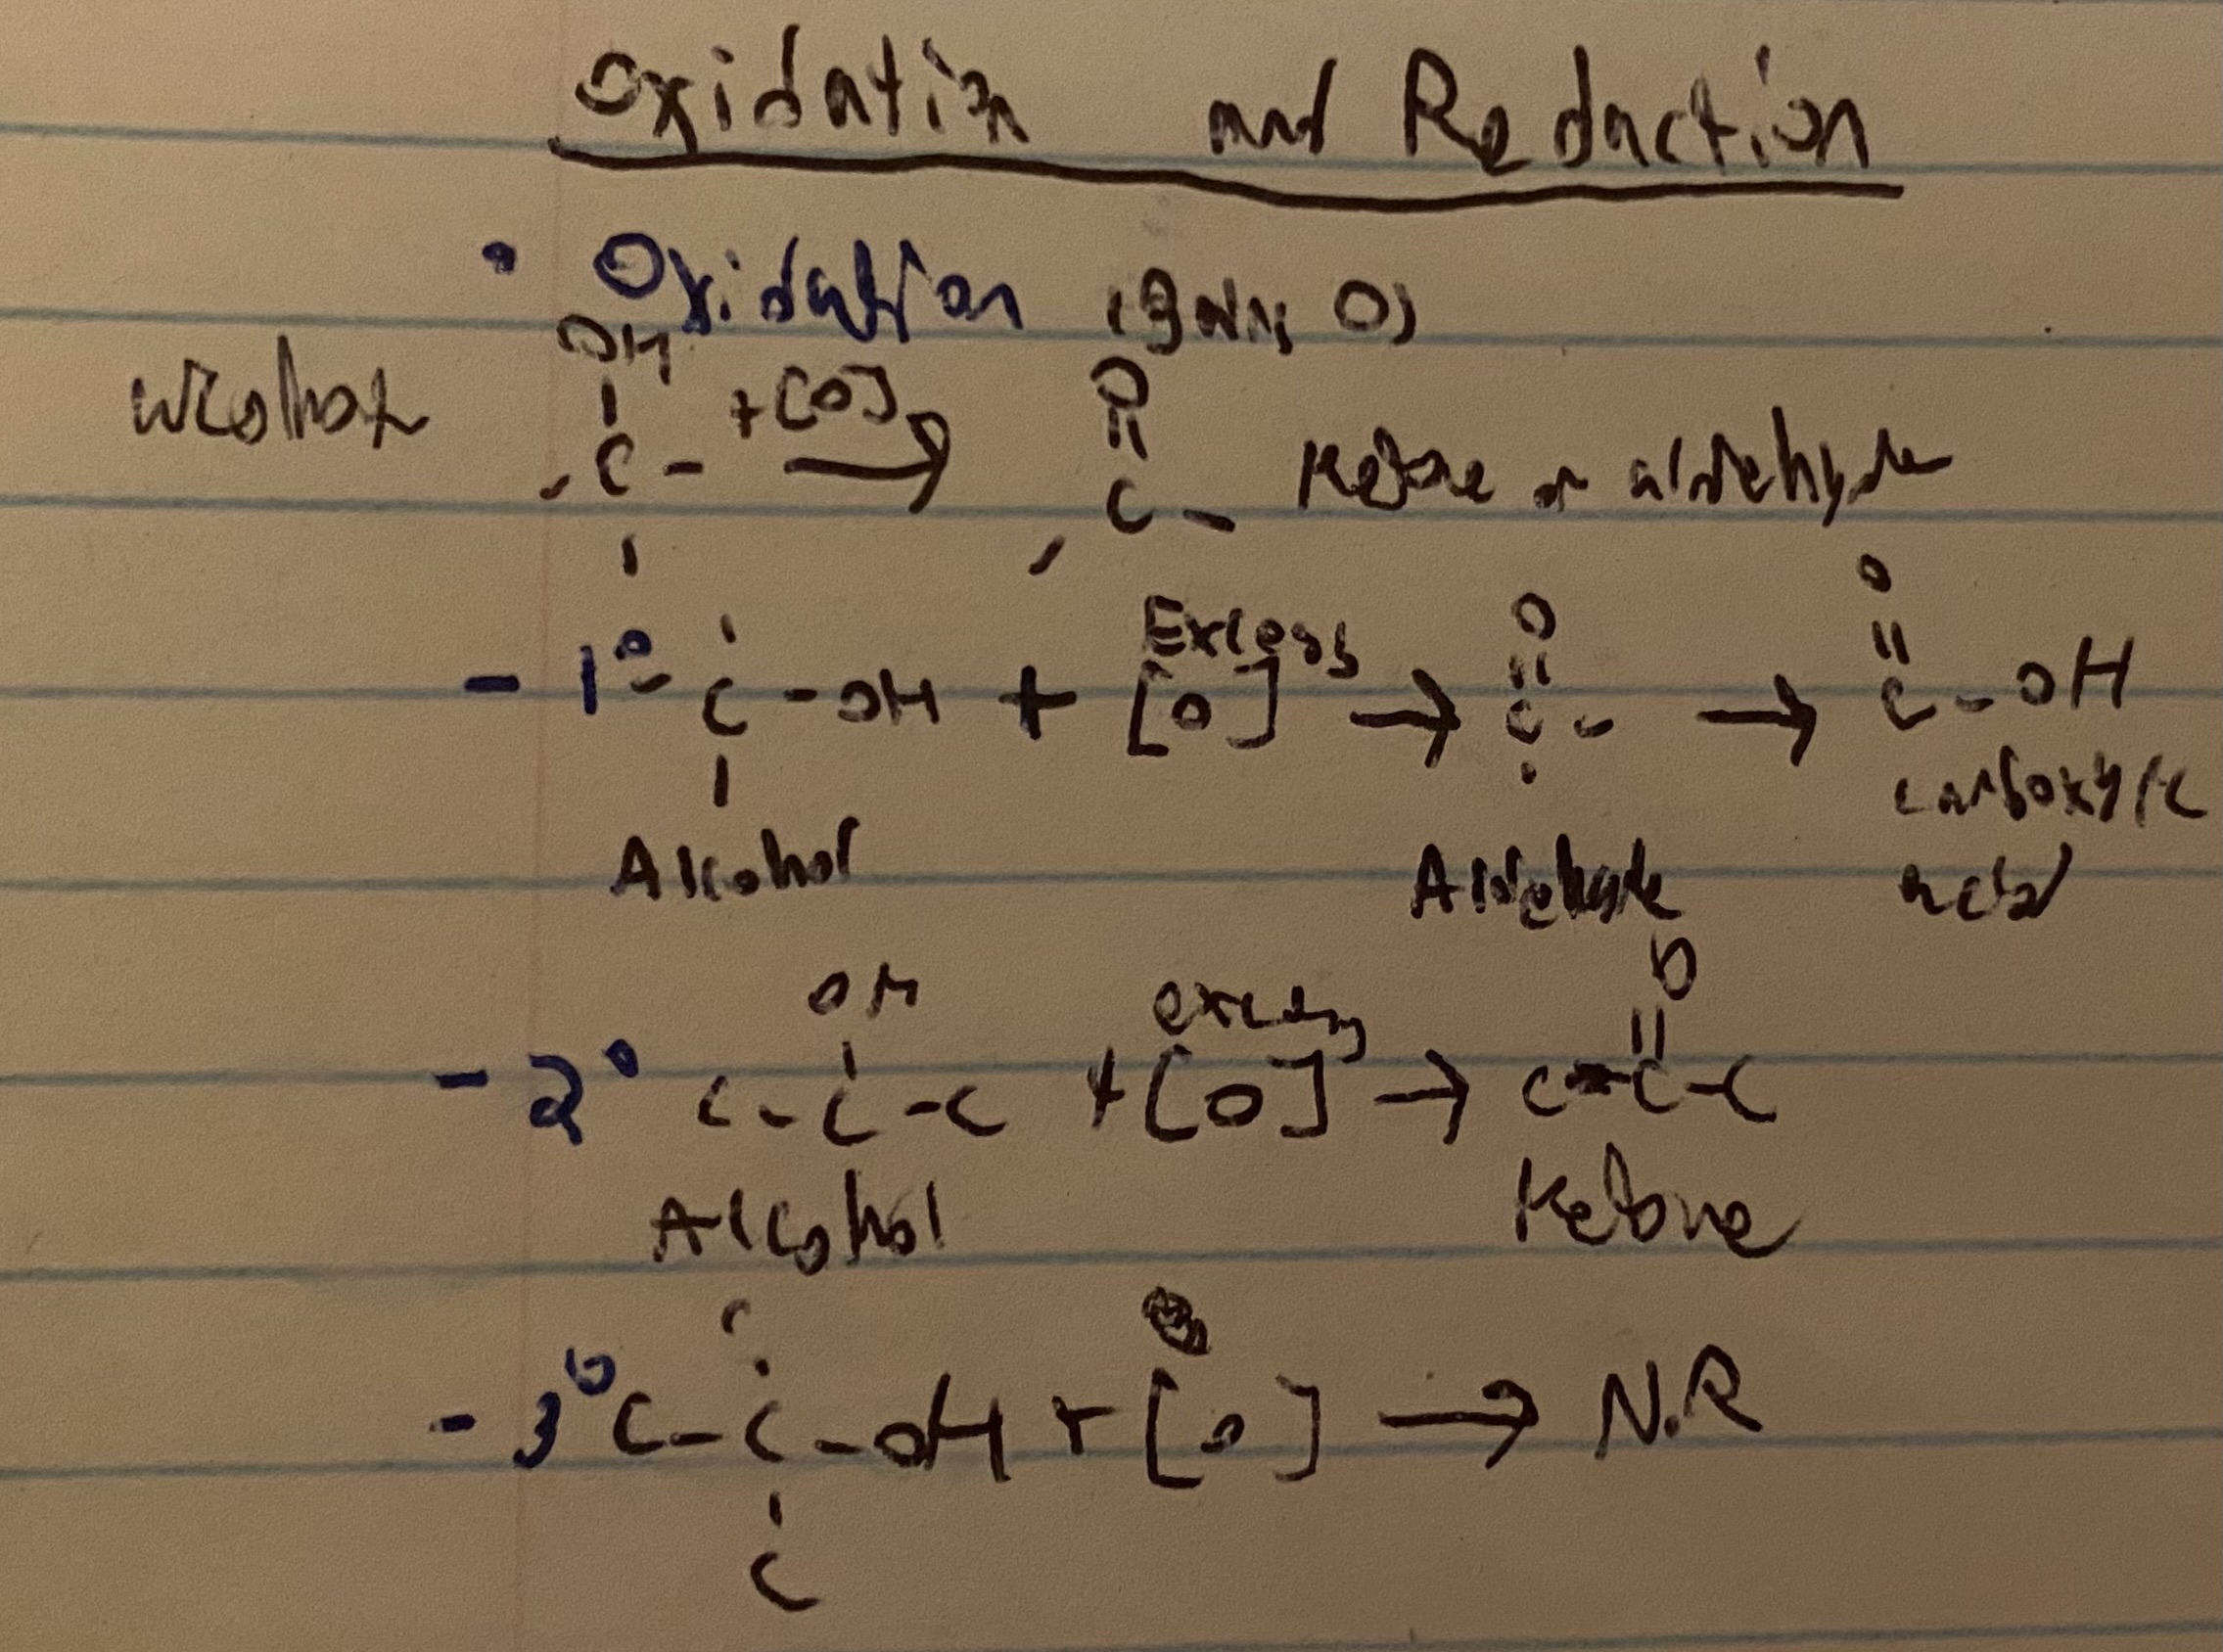 Oxidation and Reduction
• Oxidation (gains O)
OH
Alcohol - C - +[O] → C - Ketone or aldehyde
O
- 1° - C - OH + [O] Excess → C - → C - OH
O O
Alcohol Aldehyde carboxylic acid
OH O
- 2° C - C - C + [O] excess → C - C - C
Alcohol Ketone
C
- 3° C - C - OH + [O] → N.R
C